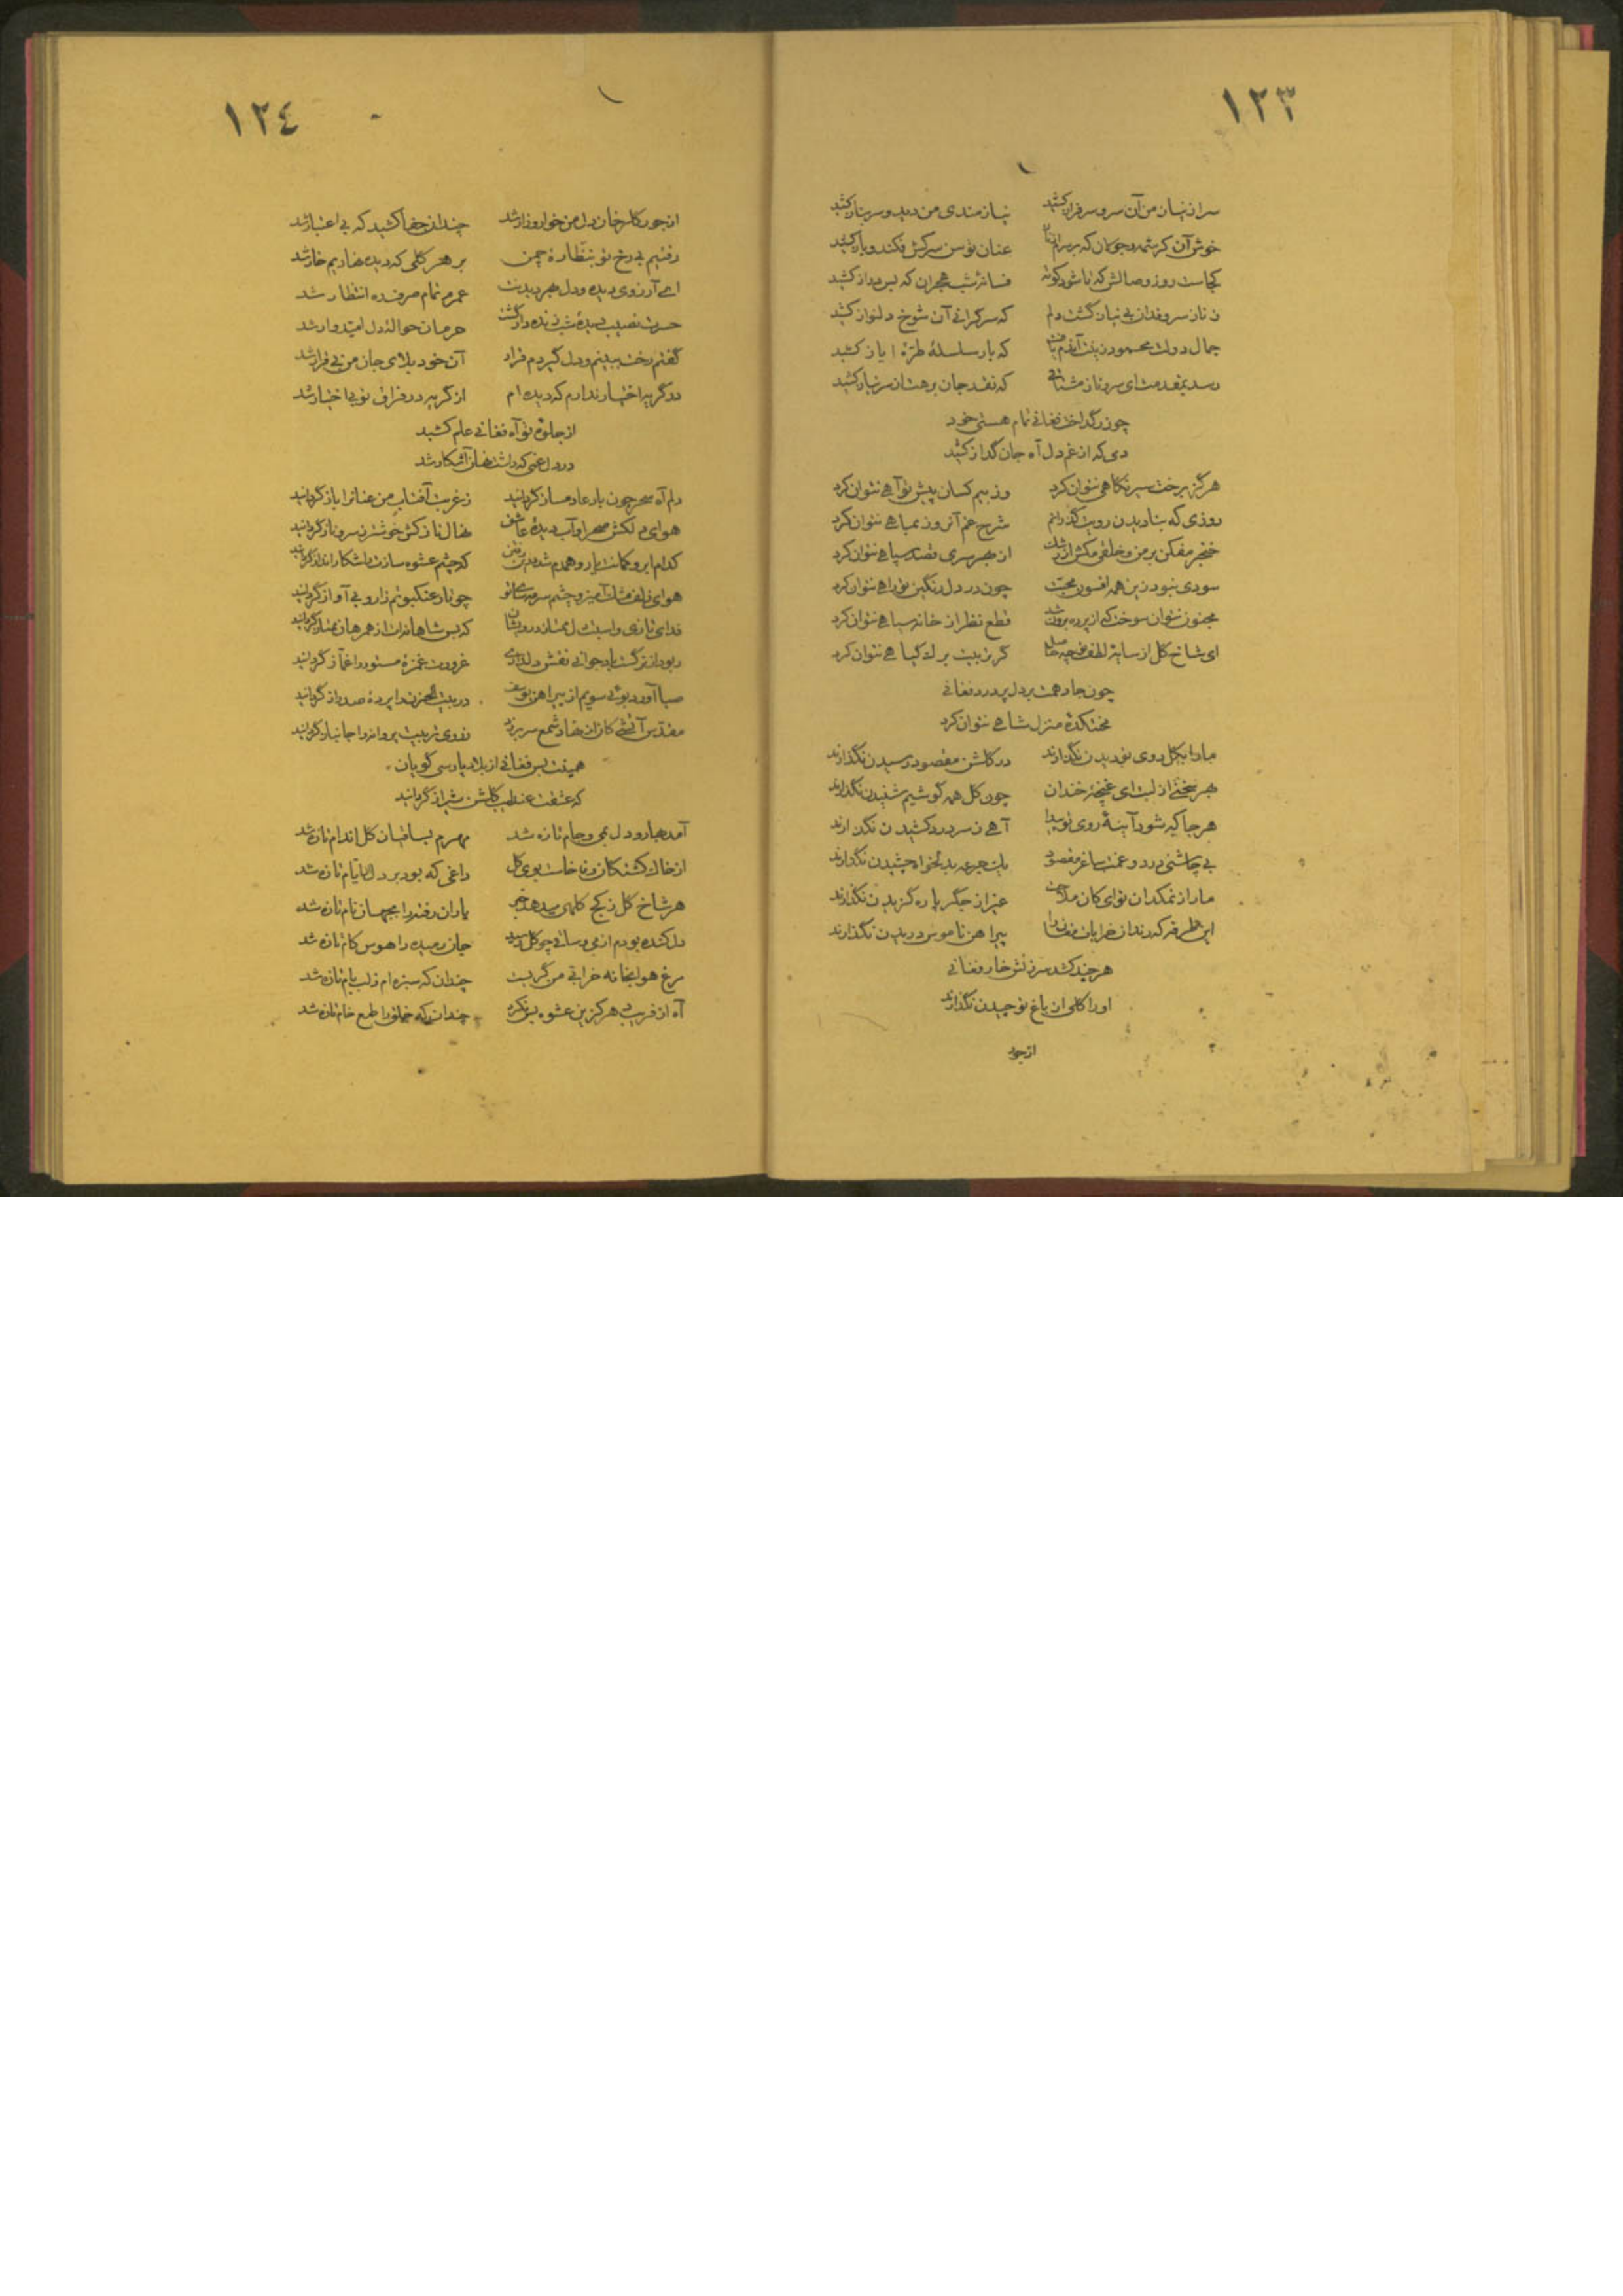 ۱۲۳
سر از نیاز من آن سرو سرفراز کشید نیازمندی من دید و سر بناز کشید
خوش آن کرشمه و جولان که بر سرم عنان توسن سرکش فکند و باز کشید
کجاست روز وصالش که تا شود کوته فسانهٔ شب هجران که بس دراز کشید
ز ناز سروقدان بی نیاز گشت دلم که سرگرانی آن شوخ دلنواز کشید
جمال دولت محمود زینت آندم یافت که بار سلسلهٔ طرّهٔ ایاز کشید
رسد بمقدمت ای سرو ناز که نقد جان بر هت از سر نیاز کشید
چو زر گداخت فغانی تمام هستی خود
دمی که از غم دل آه جان گداز کشید
هرگز برخت سیر نگاهی نتوان کرد وز بیم کسان پیش تو آهی نتوان کرد
روزی که بنادیدن رویت گذرانم شرح غم آنروز بماهی نتوان کرد
خنجر مفکن بر من و خلقی مکش از رشک از بهر سری قصد سپاهی نتوان کرد
سودی نبود زین همه افسون محبت چون در دل سنگین تو راهی نتوان کرد
مجنون نتوان سوخت که از پرده برون قطع نظر از خانه سیاهی نتوان کرد
ای شاخ گل از سایهٔ لطف تو چه حاصل گر تربیت برگ گیاهی نتوان کرد
چون جا دهمت بر دل پر درد فغانی
محنتکدهٔ منزل شاهی نتوان کرد
ما را بگل روی تو دیدن نگذارند در گلشن مقصود رسیدن نگذارند
بهر سخنی از لبت ای غنچهٔ خندان چون گل همه گوشیم شنیدن نگذارند
هر جا که شود آینهٔ روی تو پیدا آهی ز سر درد کشیدن نگذارند
بی چاشنی درد و غمت ساغر مقصود یک جرعه بدلخواه چشیدن نگذارند
ما را ز نمکدان تو ای کان ملاحت غیر از جگر پاره گزیدن نگذارند
این طرفه که رندان خرابات مغان را پیراهن ناموس دریدن نگذارند
هر چند کشد سرزنش خار فغانی
او را گلی از باغ تو چیدن نگذارند
از جور
۱۲٤
از جور گلرخان دل من خوار و زار شد چندان جفا کشید که بی اعتبار شد
رفتیم بی رخ تو بنظّارهٔ چمن بر هر گلی که دیده نهادیم خار شد
ای آرزوی دیده و دل بهر دیدنت عمرم تمام صرف ره انتظار شد
حسرت نصیب دیدهٔ شب زنده دار گشت حرمان حوالهٔ دل امیدوار شد
گفتم رخت ببینم و دل گیردم قرار آن خود بلای جان من بی قرار شد
در گریه اختیار ندارم که دیده ام از گریه در فراق تو بی اختیار شد
از جلوهٔ تو آه فغانی علم کشید
درد دلی که داشت نهان آشکار شد
دلم آه سحر چون با دعا دمساز گردانید ز غربت آفتاب من عنانرا باز گردانید
هوای دلکش صحرا و آب دیدهٔ عاشق نهال نازکش خوشتر ز سرو ناز گردانید
کدام ابرو کمانت یار و همدم شد که چشم عشوه سازت را شکار انداز گردانید
هوای زلف مشک آمیز و چشم سرمه سای تو چو تار عنکبوتم زار و بی آواز گردانید
فدای نازی و اسبت دل که بس شاهانه ات از همرهان ممتاز گردانید
ربود از نرگست باد جوانی نقش دلداری غرورت غمزهٔ مستور را غمّاز گردانید
صبا آورد بوئی سویم از پیراهن یوسف در بیت الحزن را پردهٔ صد راز گردانید
مقدّس آتشی کان از نهاد شمع سر بر زد بروی تربیت پروانه را جانباز گردانید
همینت بس فغانی از بلاد پارسی گویان
که عشقت عندلیب گلشن شیراز گردانید
آمد بهار و دل بمی و جام تازه شد مهرم بساقیان گل اندام تازه شد
از خاک کشتگان وفا خاست بوی گل داغی که بود بر دل از ایام تازه شد
هر شاخ گل ز کج کلهی میدهد خبر یاران رفته را بجهان نام تازه شد
دل کنده بودم از می و ساقی چو گل رسید جان رمیده را هوس کام تازه شد
مرغ هوا بخانه خرابی من گریست چندان که سبزه ام ز لب بام تازه شد
آه از فریب هرگز ین عشوه بس نکرد چندان که خلق را طمع خام تازه شد